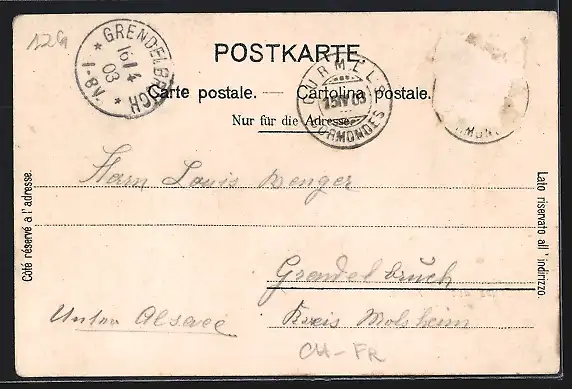 129
GRENDELBRUCH
16/4
03
1-8V.
POSTKARTE
Carte postale. — Cartolina postale.
Nur für die Adresse.
GURMELS
15.IV.03
CORMONDES
Herrn Louis Wenger
Grendelbruch
Unter Alsace
Kreis Molsheim
CH-FR
Côté réservé à l'adresse.
Lato riservato all' indirizzo.